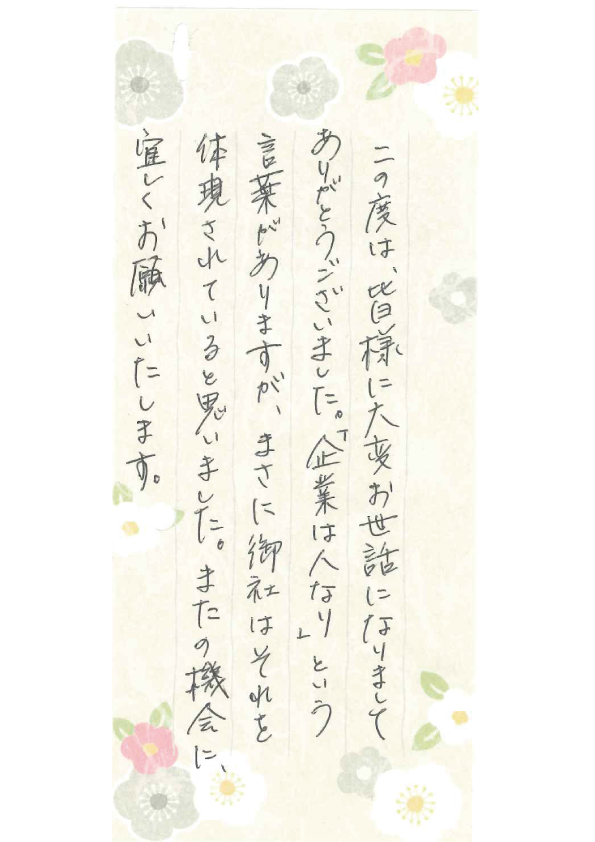 この度は、皆様に大変お世話になりまして
ありがとうございました。「企業は人なり」という
言葉がありますが、まさに御社はそれを
体現されていると思いました。またの機会に、
宜しくお願いいたします。